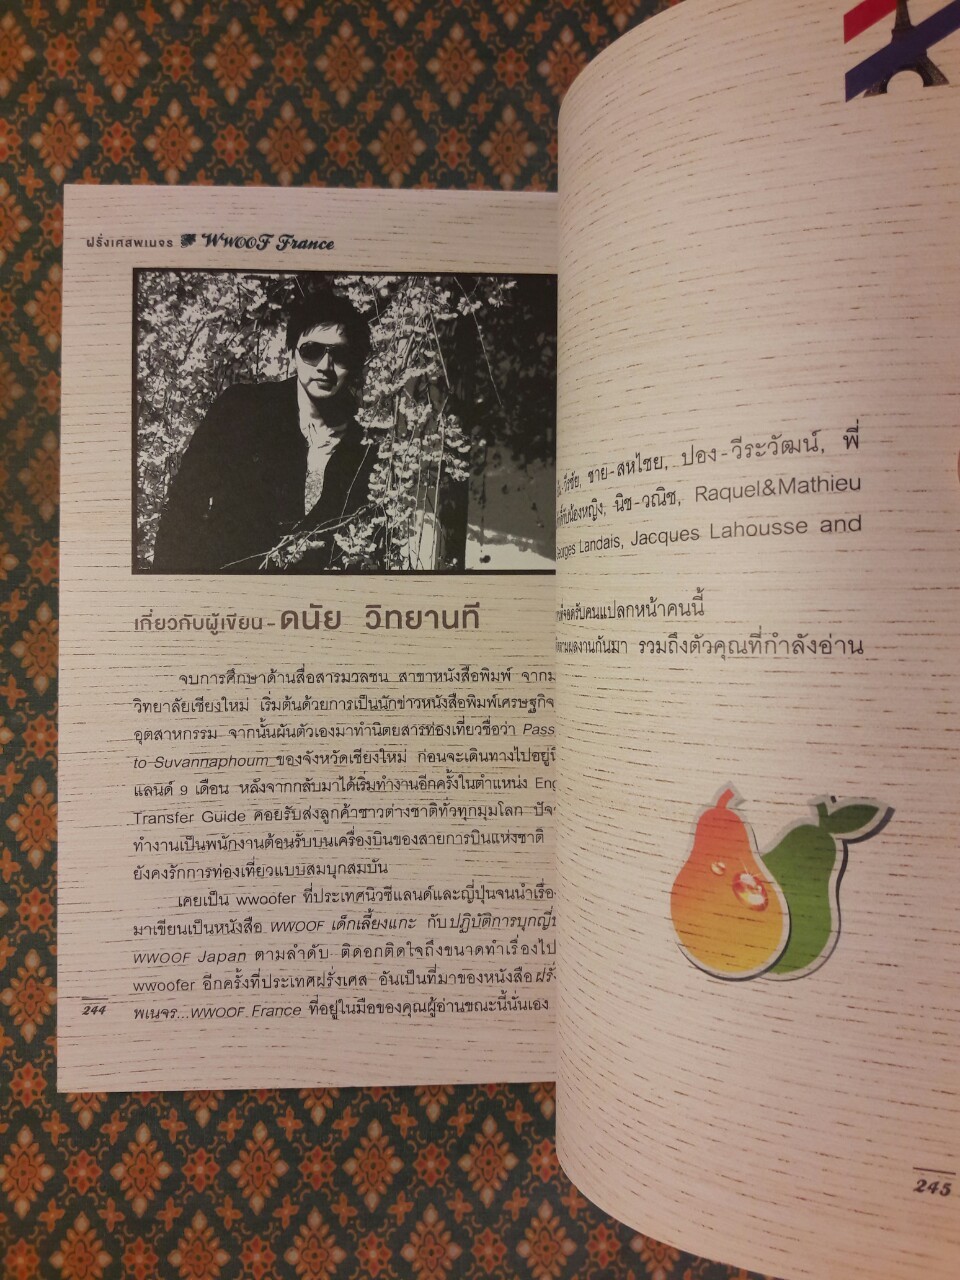 ฝรั่งเศสพเนจร WWOOF France
เกี่ยวกับผู้เขียน - ดนัย วิทยานที
จบการศึกษาด้านสื่อสารมวลชน สาขาหนังสือพิมพ์ จากม
วิทยาลัยเชียงใหม่ เริ่มต้นด้วยการเป็นนักข่าวหนังสือพิมพ์เศรษฐกิจ
อุตสาหกรรม จากนั้นผันตัวเองมาทำนิตยสารท่องเที่ยวชื่อว่า Pass
to Suvannaphoum ของจังหวัดเชียงใหม่ ก่อนจะเดินทางไปอยู่นิ
แลนด์ 9 เดือน หลังจากกลับมาได้เริ่มทำงานอีกครั้งในตำแหน่ง Eng
Transfer Guide คอยรับส่งลูกค้าชาวต่างชาติทั่วทุกมุมโลก ปัจ
ทำงานเป็นพนักงานต้อนรับบนเครื่องบินของสายการบินแห่งชาติ
ยังคงรักการท่องเที่ยวแบบสมบุกสมบัน
เคยเป็น wwoofer ที่ประเทศนิวซีแลนด์และญี่ปุ่นจนนำเรื่อ
มาเขียนเป็นหนังสือ WWOOF เด็กเลี้ยงแกะ กับปฏิบัติการบุกญี่ป
WWOOF Japan ตามลำดับ ติดอกติดใจถึงขนาดทำเรื่องไป
wwoofer อีกครั้งที่ประเทศฝรั่งเศส อันเป็นที่มาของหนังสือฝรั่
พเนจร...WWOOF France ที่อยู่ในมือของคุณผู้อ่านขณะนี้นั่นเอง
244
ชาย-สหไชย, ปอง-วีระวัฒน์, พี่
นิช-วณิช, Raquel&Mathieu
Landais, Jacques Lahousse and
คนแปลกหน้าคนนี้
รวมถึงตัวคุณที่กำลังอ่าน
245